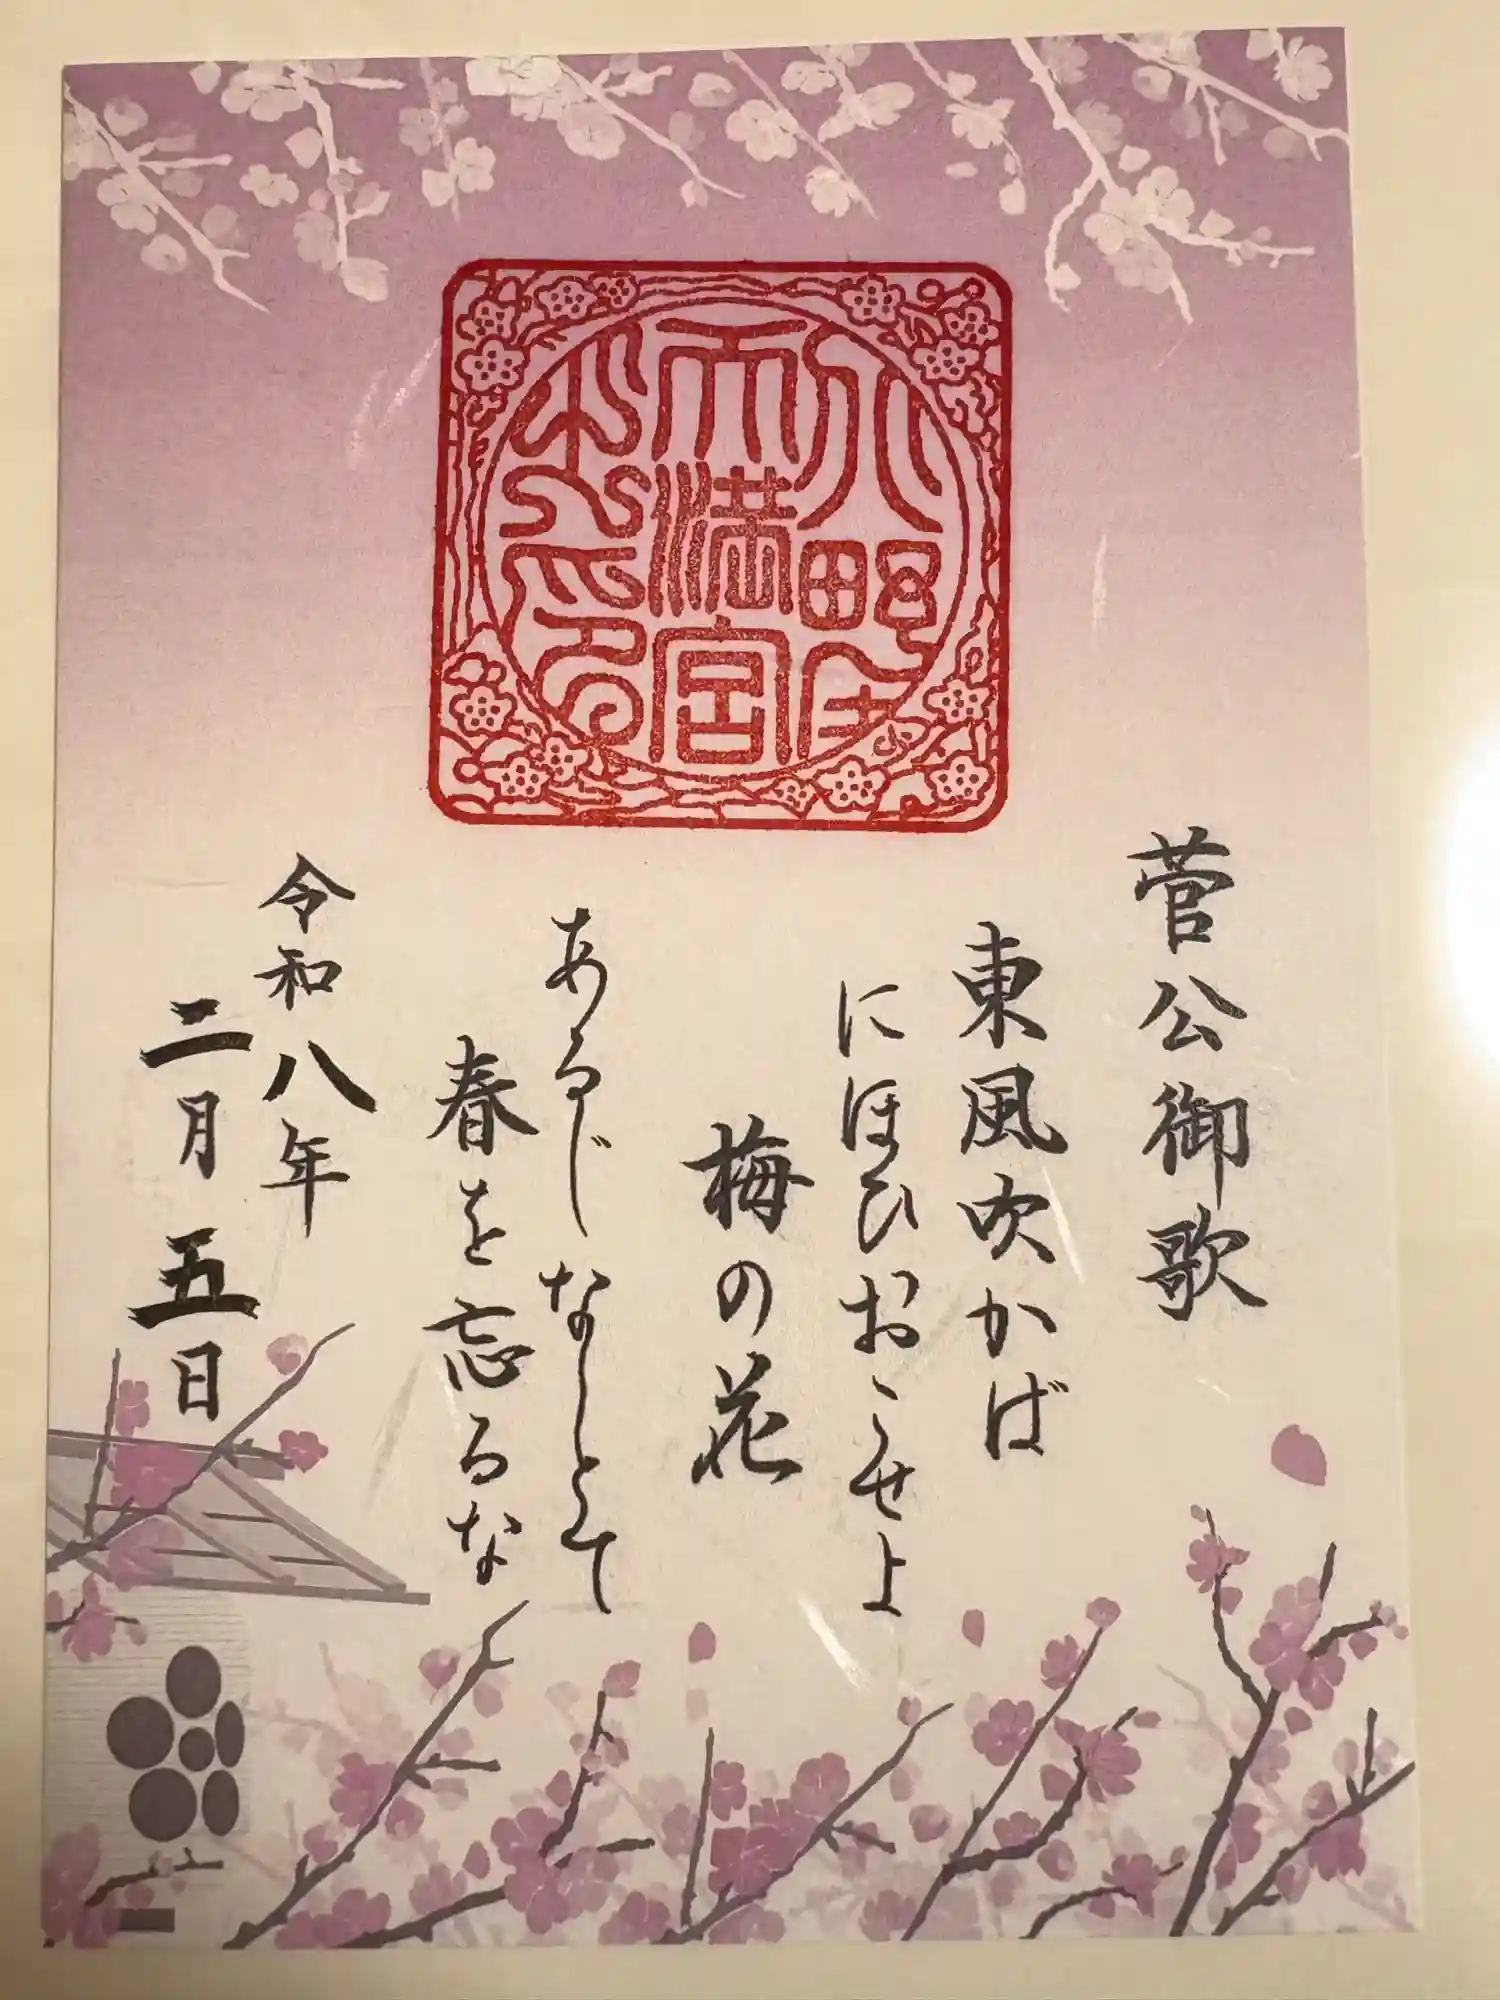 天満宮
菅公御歌
東風吹かば
にほひおこせよ
梅の花
あるじなしとて
春を忘るな
令和八年
二月五日